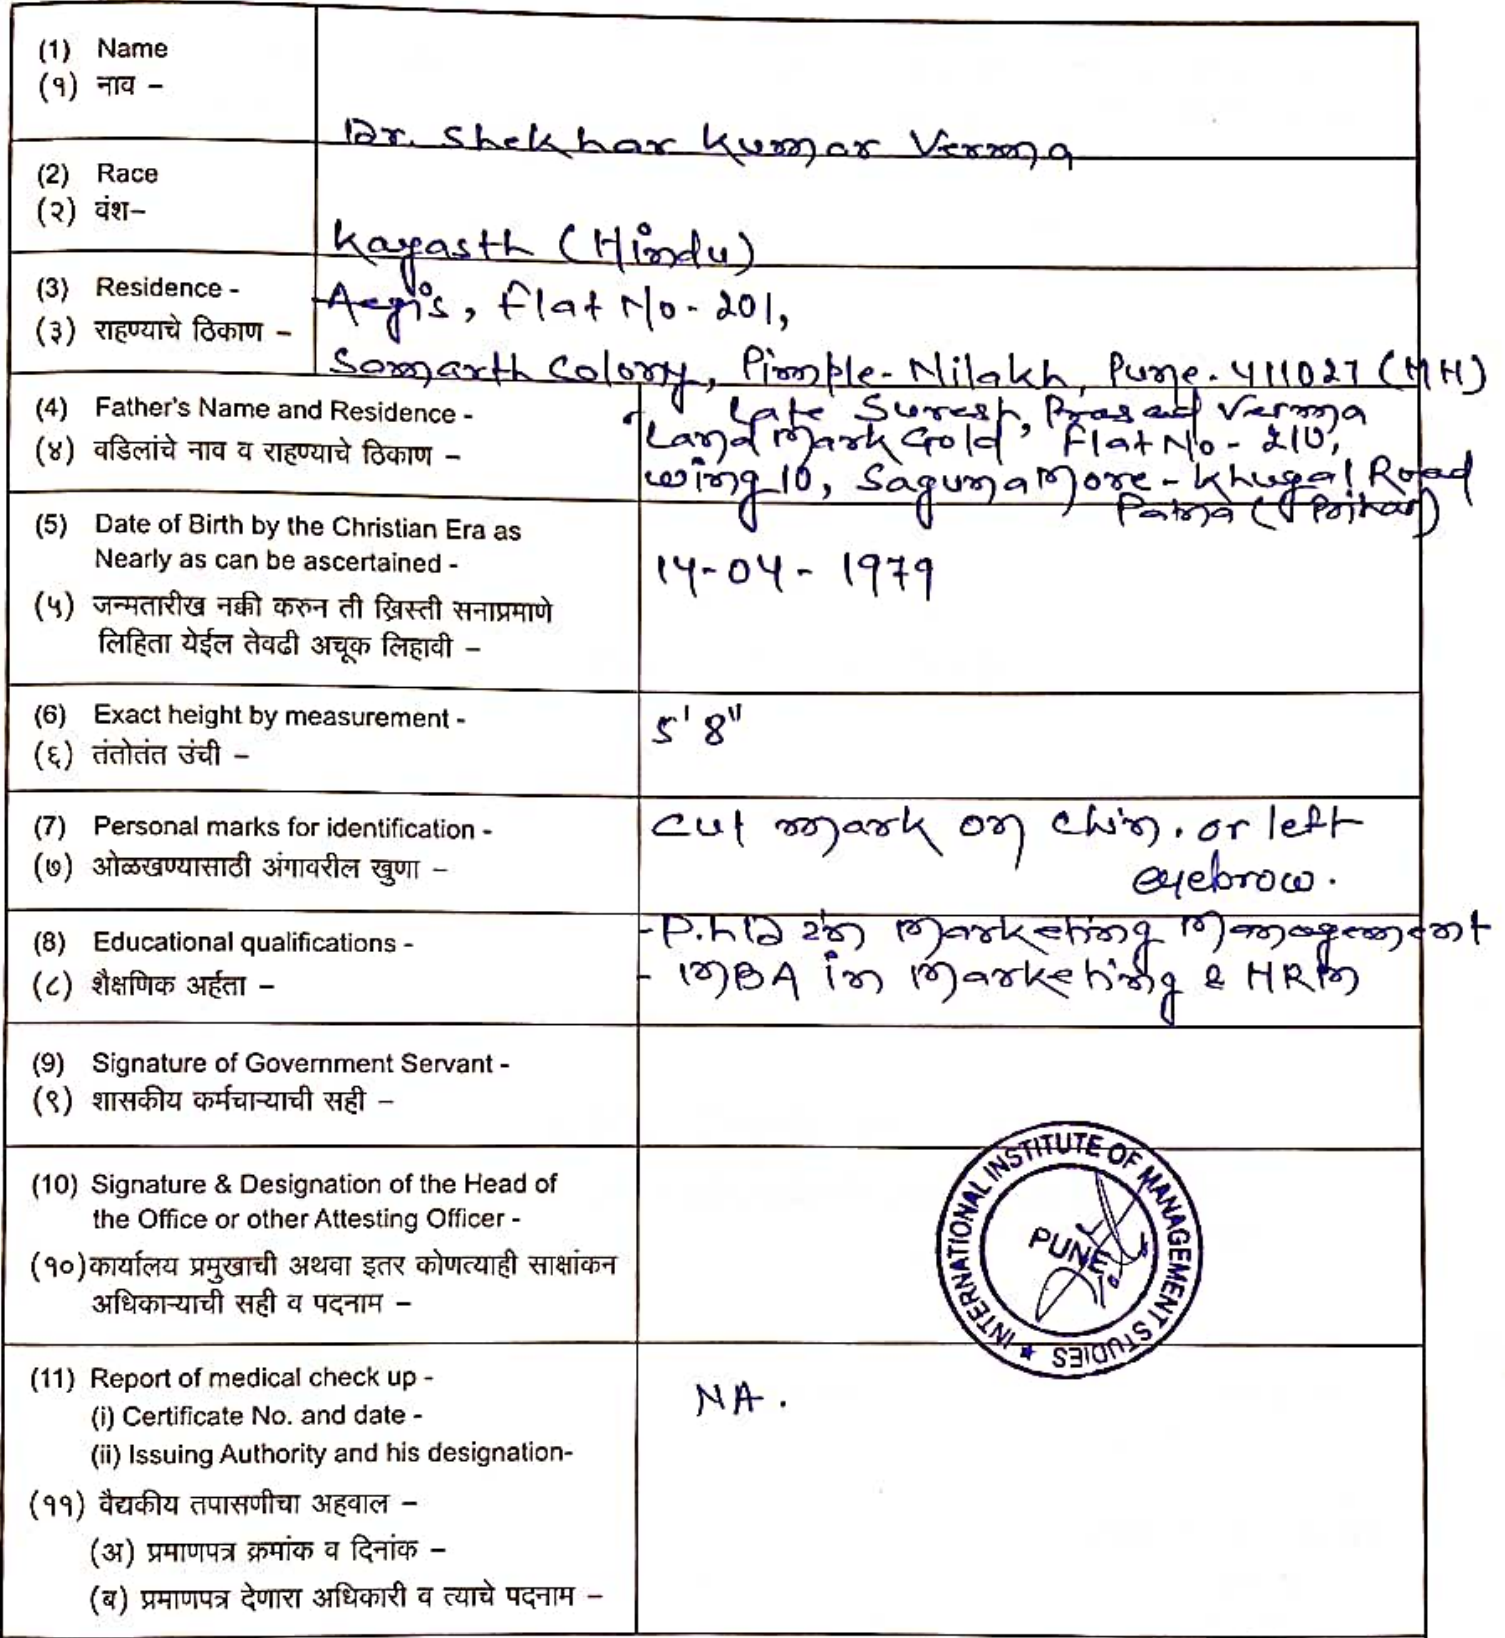 (1) Name
(१) नाव –
Dr. Shekhar Kumar Verma
(2) Race
(२) वंश–
Kayasth (Hindu)
(3) Residence -
(३) राहण्याचे ठिकाण –
Aegis, Flat No- 201,
Samarth Colony, Pimple- Nilakh, Pune- 411027 (MH)
(4) Father's Name and Residence -
(४) वडिलांचे नाव व राहण्याचे ठिकाण –
Late Suresh Prasad Verma
Land Mark Gold, Flat No-
Wing 10, Saguna More - Khugal Road
Patna
(5) Date of Birth by the Christian Era as
Nearly as can be ascertained -
(५) जन्मतारीख नक्की करुन ती ख्रिस्ती सनाप्रमाणे
लिहिता येईल तेवढी अचूक लिहावी –
14-04-1979
(6) Exact height by measurement -
(६) तंतोतंत उंची –
5'8"
(7) Personal marks for identification -
(७) ओळखण्यासाठी अंगावरील खुणा –
Cut mark on chin. or left
eyebrow.
(8) Educational qualifications -
(८) शैक्षणिक अर्हता –
- P.hD in Marketing Management
- MBA in Marketing & HRM
(9) Signature of Government Servant -
(९) शासकीय कर्मचाऱ्याची सही –
(10) Signature & Designation of the Head of
the Office or other Attesting Officer -
(१०) कार्यालय प्रमुखाची अथवा इतर कोणत्याही साक्षांकन
अधिकाऱ्याची सही व पदनाम –
INTERNATIONAL INSTITUTE OF MANAGEMENT STUDIES ★
PUNE
(11) Report of medical check up -
(i) Certificate No. and date -
(ii) Issuing Authority and his designation-
NA.
(११) वैद्यकीय तपासणीचा अहवाल –
(अ) प्रमाणपत्र क्रमांक व दिनांक –
(ब) प्रमाणपत्र देणारा अधिकारी व त्याचे पदनाम –